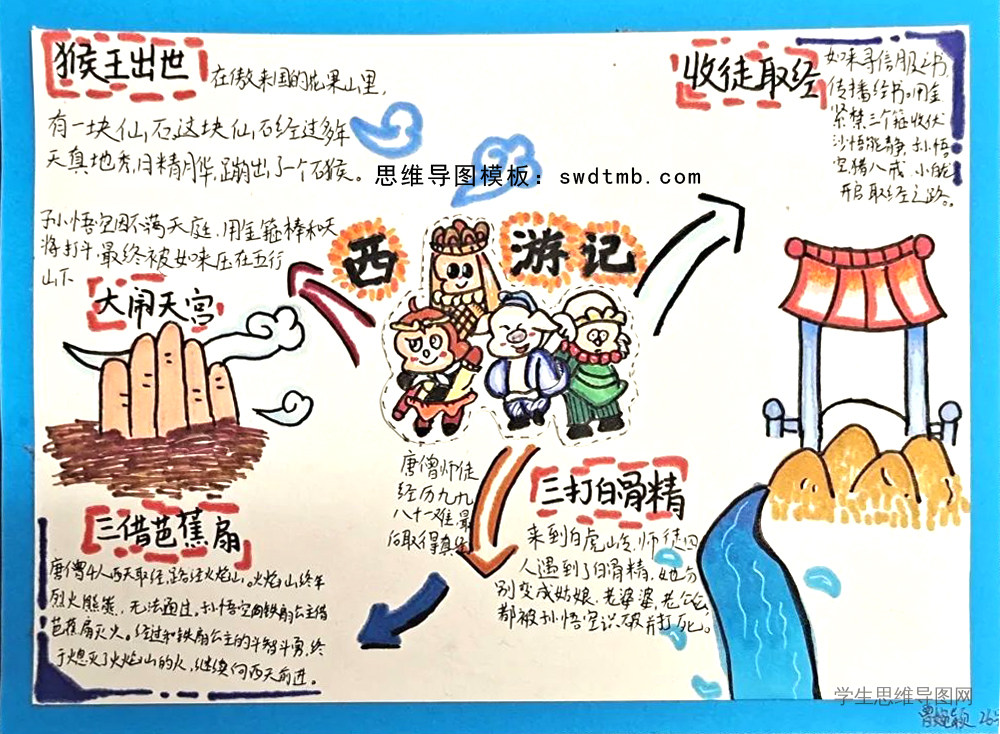 猴王出世
在傲来国的花果山里,
有一块仙石,这块仙石经过多年
天真地秀,日精月华,蹦出了一个石猴。
思维导图模板:swdtmb.com
收徒取经
如来寻信服之书
传播经书。用金
紧禁三个箍收伏
沙悟能静 孙小悟
空猪八戒,小能
开启取经之路。
孙小悟空因不满天庭,用金箍棒和天
将打斗,最终被如来压在五行
山下
大闹天宫
西游记
唐僧师徒
经历九九
八十一难,最
后取得真经
三打白骨精
来到白虎山岭,师徒四
人遇到了白骨精,她分
别变成姑娘、老婆婆、老公公,
都被孙悟空识破并打死。
三借芭蕉扇
唐僧4人西天取经,路经火焰山。火焰山终年
烈火熊熊,无法通过,孙悟空向铁扇公主借
芭蕉扇灭火。经过和铁扇公主的斗智斗勇,终
于熄灭了火焰山的火,继续向西天前进。
学生思维导图网